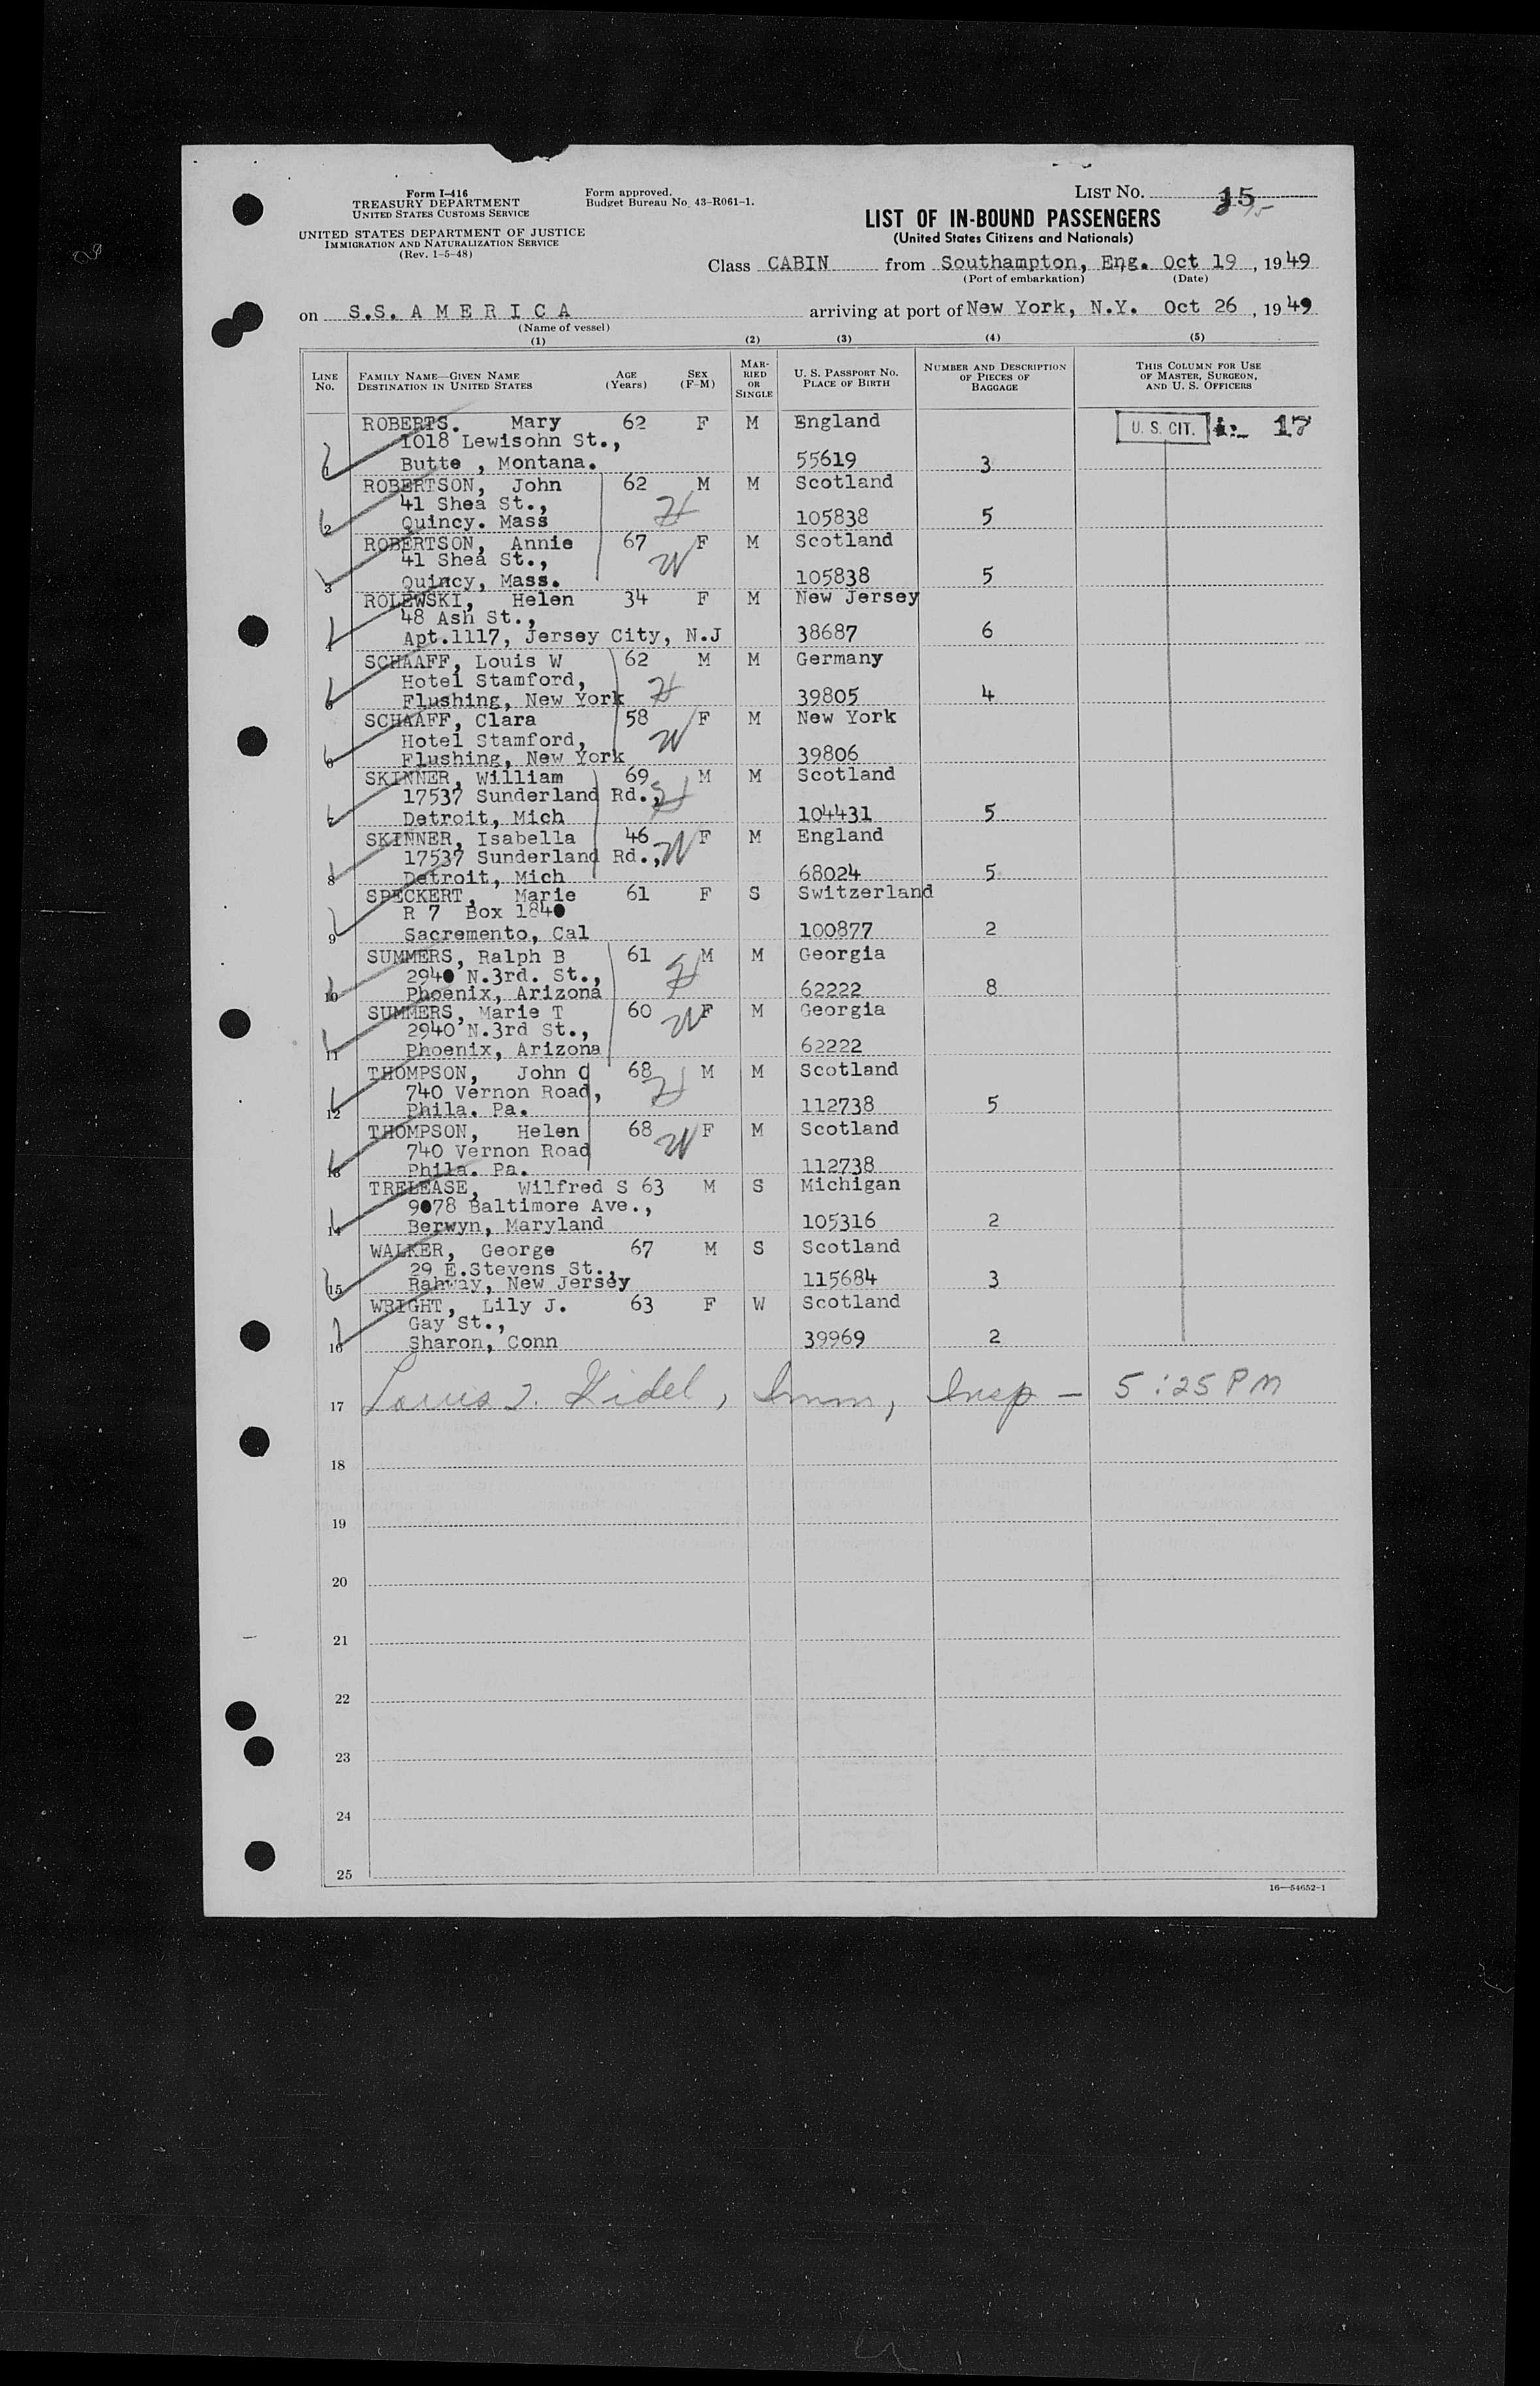 Form I-416
TREASURY DEPARTMENT
UNITED STATES CUSTOMS SERVICE
UNITED STATES DEPARTMENT OF JUSTICE
IMMIGRATION AND NATURALIZATION SERVICE
(Rev. 1-5-48)
Form approved.
Budget Bureau No. 43-R061-1.
LIST NO. 15
LIST OF IN-BOUND PASSENGERS
(United States Citizens and Nationals)
Class CABIN from Southampton, Eng. Oct 19, 1949
(Port of embarkation) (Date)
on S.S. A M E R I C A arriving at port of New York, N.Y. Oct 26, 1949
(Name of vessel)
(1) (2) (3) (4) (5)
LINE NO. FAMILY NAME—GIVEN NAME DESTINATION IN UNITED STATES AGE (Years) SEX (F-M) MARRIED OR SINGLE U. S. PASSPORT NO. PLACE OF BIRTH NUMBER AND DESCRIPTION OF PIECES OF BAGGAGE THIS COLUMN FOR USE OF MASTER, SURGEON, AND U. S. OFFICERS
ROBERTS. Mary 62 F M England U. S. CIT. 17
1018 Lewisohn St.,
1 Butte , Montana. 55619 3
ROBERTSON, John 62 M M Scotland
41 Shea St., H
2 Quincy. Mass 105838 5
ROBERTSON, Annie 67 F M Scotland
41 Shea St., W
3 Quincy, Mass. 105838 5
ROLEWSKI, Helen 34 F M New Jersey
48 Ash St.,
4 Apt.1117, Jersey City, N.J 38687 6
SCHAAFF, Louis W 62 M M Germany
Hotel Stamford, H
5 Flushing, New York 39805 4
SCHAAFF, Clara 58 F M New York
Hotel Stamford, W
6 Flushing, New York 39806
SKINNER, William 69 M M Scotland
17537 Sunderland Rd., H
7 Detroit, Mich 104431 5
SKINNER, Isabella 46 F M England
17537 Sunderland Rd., W
8 Detroit, Mich 68024 5
SPECKERT, Marie 61 F S Switzerland
R 7 Box 1840
9 Sacremento, Cal 100877 2
SUMMERS, Ralph B 61 M M Georgia
2940 N.3rd. St., H
10 Phoenix, Arizona 62222 8
SUMMERS, Marie T 60 F M Georgia
2940 N.3rd St., W
11 Phoenix, Arizona 62222
THOMPSON, John C 68 M M Scotland
740 Vernon Road, H
12 Phila. Pa. 112738 5
THOMPSON, Helen 68 F M Scotland
740 Vernon Road W
13 Phila. Pa. 112738
TRELEASE, Wilfred S 63 M S Michigan
9078 Baltimore Ave.,
14 Berwyn, Maryland 105316 2
WALKER, George 67 M S Scotland
29 E.Stevens St.,
15 Rahway, New Jersey 115684 3
WRIGHT, Lily J. 63 F W Scotland
Gay St.,
16 Sharon, Conn 39969 2
17 Louis Imm, Insp — 5:25 PM
18
19
20
21
22
23
24
25
16—54652-1